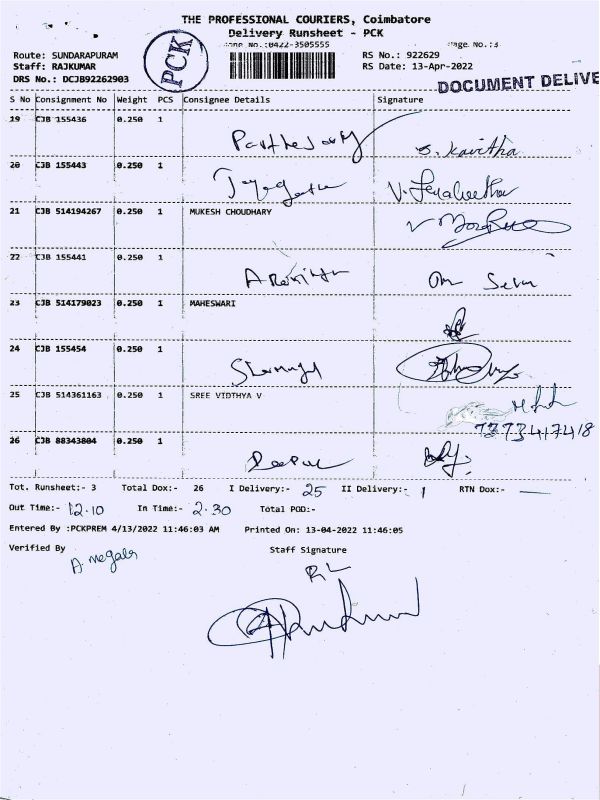 THE PROFESSIONAL COURIERS, Coimbatore
Delivery Runsheet - PCK
Phone No.:0422-3505555 Page No.:3
Route: SUNDARAPURAM RS No.: 922629
Staff: RAJKUMAR RS Date: 13-Apr-2022
DRS No.: DCJB92262903
PCK
DOCUMENT DELIVE
S No Consignment No Weight PCS Consignee Details Signature
19 CJB 155436 0.250 1
S. Kavitha
20 CJB 155443 0.250 1
21 CJB 514194267 0.250 1 MUKESH CHOUDHARY
22 CJB 155441 0.250 1
23 CJB 514179023 0.250 1 MAHESWARI
24 CJB 155454 0.250 1
25 CJB 514361163 0.250 1 SREE VIDTHYA V
7373417418
26 CJB 88343804 0.250 1
Tot. Runsheet:- 3 Total Dox:- 26 I Delivery:- 25 II Delivery:- 1 RTN Dox:- —
Out Time:- 12.10 In Time:- 2.30 Total POD:-
Entered By :PCKPREM 4/13/2022 11:46:03 AM Printed On: 13-04-2022 11:46:05
Verified By A. Megala Staff Signature